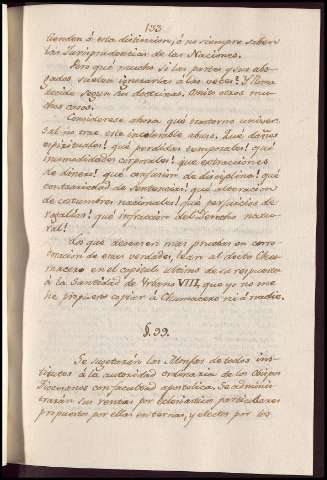 133
tienden á esta distincion, ó no siempre saben
las Jurisprudencias de las Naciones.
Pero qué mucho si las partes y sus abo-
gados suelen ignorarlas a las veces? Y Roma
decide segun sus doctrinas. Omito otros mu-
chos casos.
Considerese ahora qué trastorno univer-
sal no trae este intolerable abuso. Qué daños
espirituales! qué perdidas temporales! qué
incomodidades corporales! qué extracciones
de dinero! qué confusion de disciplina! qué
contrariedad de sentencias! qué alteracion
de costumbres nacionales! qué perjuicios de
regalias! qué infraccion del Derecho natu-
ral!
Los que desearen mas pruebas en corro-
boracion de estas verdades, lean al docto Chu-
macero en el capitulo ultimo de su respuesta
à la Santidad de Urbano VIII, que yo no me
he propuesto copiar à Chumacero ni à nadie.
§. 99.
Se sugetarán los Monjas de todos ins-
titutos à la autoridad ordinaria de los Obispos
Diocesanos con facultad apostolica. Se adminis-
trarán sus rentas por eclesiasticos particulares
propuestos por ellas en ternas, y electos por los